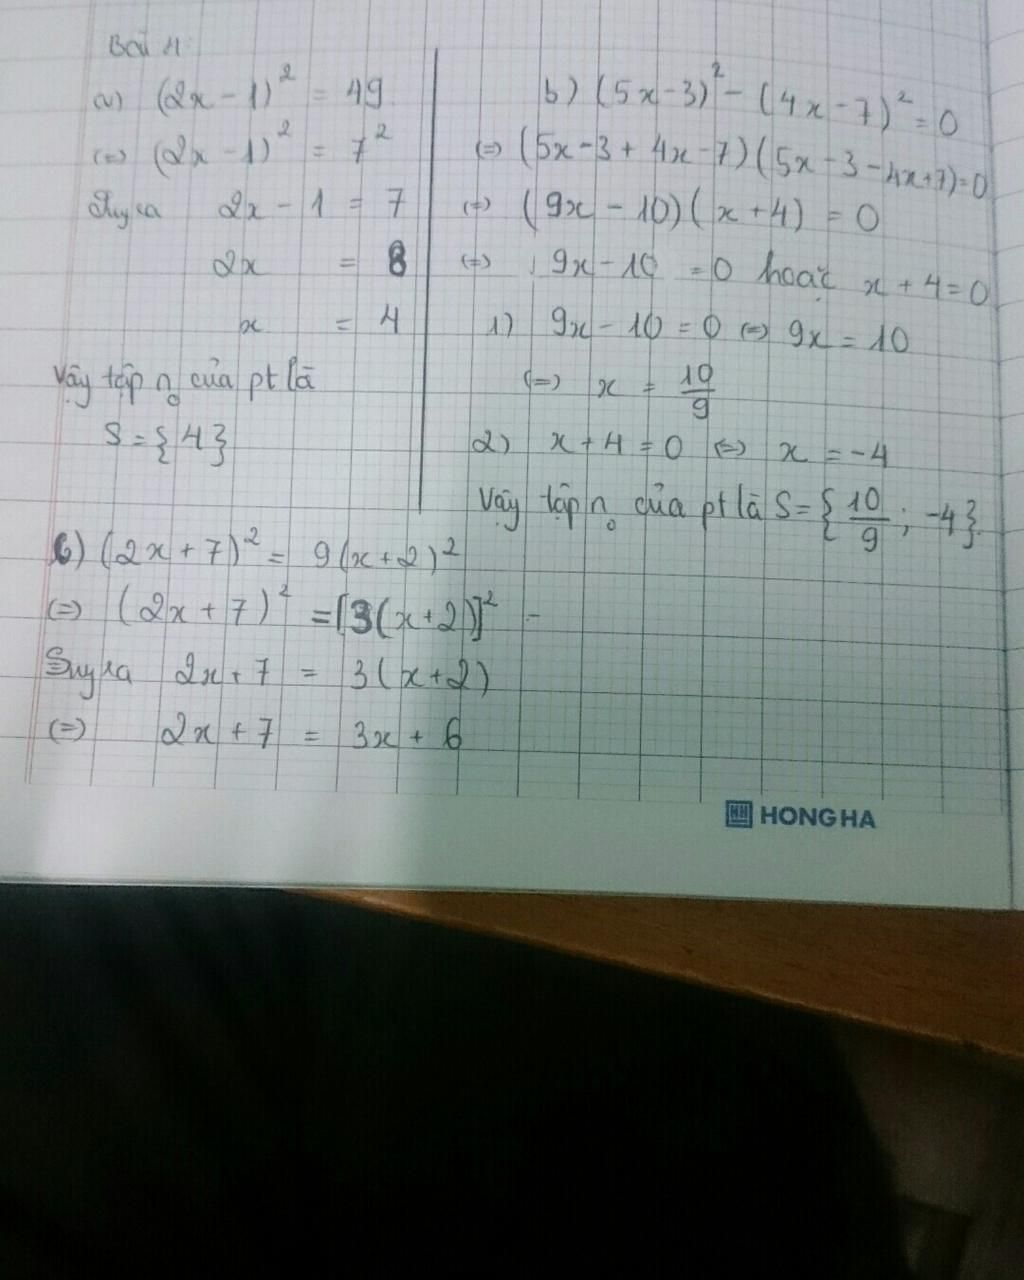 Bài 11:
a) (2x - 1)² = 49
(=) (2x - 1)² = 7²
Suy ra 2x - 1 = 7
2x = 8
x = 4
Vậy tập n₀ của pt là
S = {4}
b) (5x - 3)² - (4x - 7)² = 0
(=) (5x - 3 + 4x - 7)(5x - 3 - 4x + 7) = 0
(=) (9x - 10)(x + 4) = 0
(=) 9x - 10 = 0 hoặc x + 4 = 0
1) 9x - 10 = 0 (=) 9x = 10
(=) x = 10/9
2) x + 4 = 0 (=) x = -4
Vậy tập n₀ của pt là S = {10/9 ; -4}.
c) (2x + 7)² = 9(x + 2)²
(=) (2x + 7)² = [3(x + 2)]²
Suy ra 2x + 7 = 3(x + 2)
(=) 2x + 7 = 3x + 6
HH HONG HA